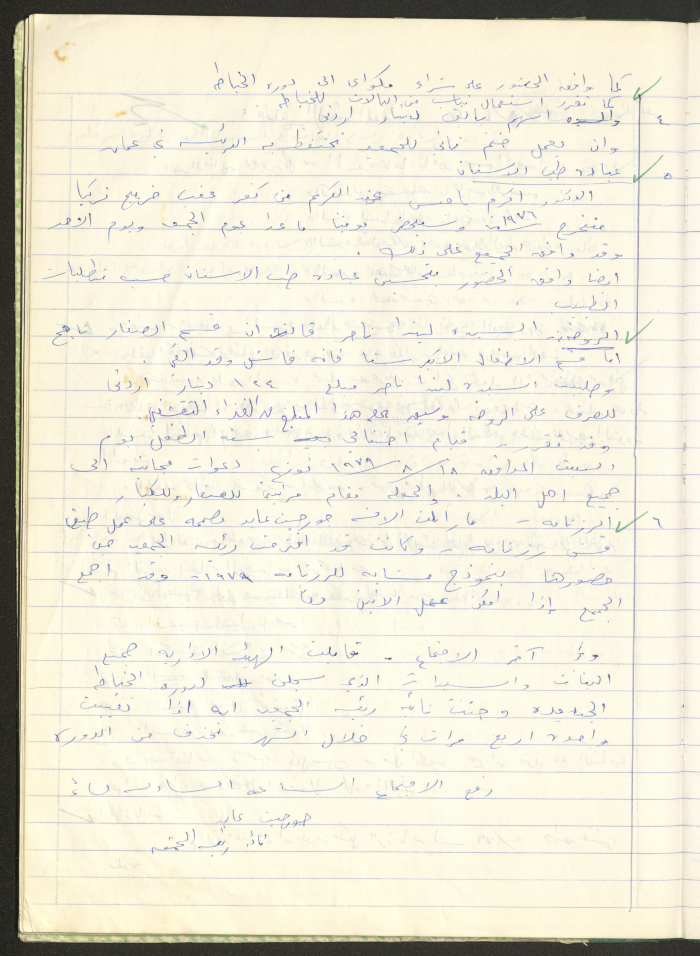 كما وافق الحضور على شراء مكواى الى دورة الخياطة
كما تقرر استعمال ثياب من البالات للخياطة
٤ اسهم دينار اردني
وان تعمل ختم ثاني للجمعية تحتفظ به الرئيسة في عمان
٥ عيادة طب الاسنان
الدكتور اكرم عبد الكريم من كفر عقب خريج تركيا
متخرج سنة ١٩٧٦ يوميا ما عدا يوم الجمعة ويوم الاحد
وقد وافق الجميع على ذلك.
ايضا وافق الحضور بتحسين عيادة طب الاسنان حسب متطلبات
الطبيب
الروضة: السيدة ليندا ناصر قالت ان قسم الصغار ناجح
اما قسم الاطفال الاكبر سنا فانه فاشل وقد الغي
وطلبت السيدة ليندا ناصر مبلغ ١٢٢ دينار اردني
للصرف على الروضة هذا المبلغ
وقد تقرر قيام احتفالي سنة الطفل يوم
السبت الموافق ١٨/٨/١٩٧٩ توزع دعوات مجانية الى
جميع اهل البلد. والحفلة تقام مرتين للصغار وللكبار
٦ الرزنامة - ما زالت الانسة جورجيت عابد مصممة على عمل طبق
قش رزنامة - وكانت قد اقترحت رئيسة الجمعية
حضورها بنموذج مشابه للرزنامة ١٩٧٩ - وقد اجمع
الجميع إذا امكن عمل الاثنين معا
وفي آخر الاجتماع - قابلت الهيئة الادارية جميع
البنات والسيدات الذي سجلن لدورة الخياطة
الجديدة وحثت نائبة رئيسة الجمعية انه اذا تغيبت
واحدة اربع مرات في خلال الشهر تحذف من الدورة
رفع الاجتماع الساعة السادسة مساءً
جورجيت عابد
نائبة رئيسة الجمعية